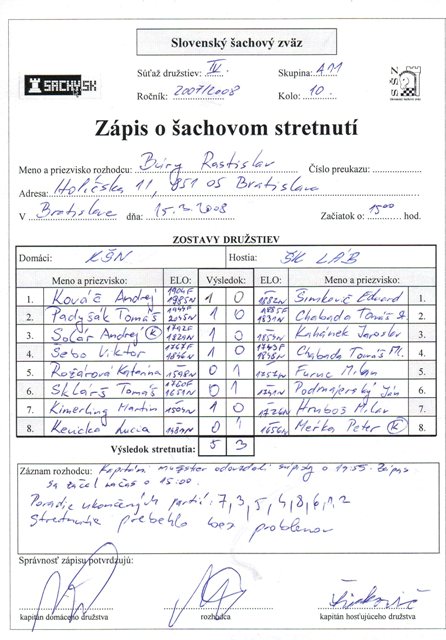 Slovenský šachový zväz
Súťaž družstiev: IV. Skupina: A11
Ročník: 2007/2008 Kolo: 10.
SACHY.SK
Zápis o šachovom stretnutí
Meno a priezvisko rozhodcu: Búry Rastislav Číslo preukazu:
Adresa: Holíčska 11, 851 05 Bratislava
V Bratislave dňa: 15.3.2008 Začiatok o: 15⁰⁰ hod.
ZOSTAVY DRUŽSTIEV
Domáci: KŠN Hostia: ŠK LÁB
Meno a priezvisko: ELO: Výsledok: ELO: Meno a priezvisko:
1. Kováč Andrej 1 0 1882N Šimkovič Eduard 1.
2. Padyšák Tomáš 1 0 Chabada Tomáš 2.
3. Solár Andrej (K) 1 0 Kahánek Jaroslav 3.
4. Šebo Viktor 1 0 Chabada Tomáš Ml. 4.
5. Rožárová Katarína 0 1 Furuc Milan 5.
6. Sklárš Tomáš 0 1 Podmajerský Ján 6.
7. Kimerling Martin 1 0 Hruboš Milan 7.
8. Kevická Lucia 0 1 Meška Peter (K) 8.
Výsledok stretnutia: 5 3
Záznam rozhodcu: Kapitáni mužstiev odovzdali súpisky o 14:55. Zápas
sa začal načas o 15:00.
Poradie ukončených partií: 7,3,5,4,8,6,1,2
Stretnutie prebehlo bez problémov
Správnosť zápisu potvrdzujú:
kapitán domáceho družstva rozhodca kapitán hosťujúceho družstva